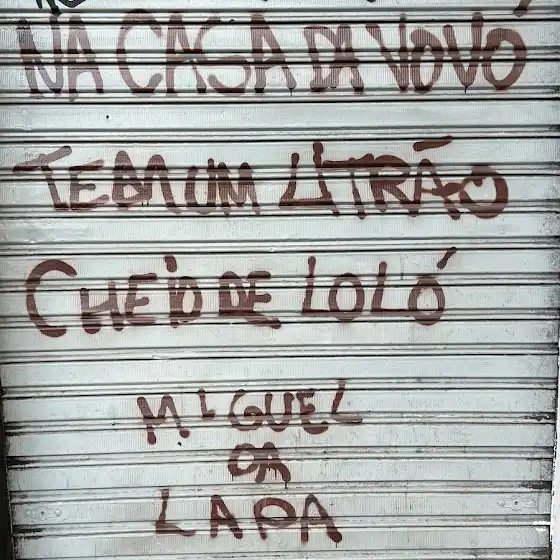 NA CASA DA VOVÓ
TEM UM LITRÃO
CHEIO DE LOLÓ
MIGUEL
DA
LAPA